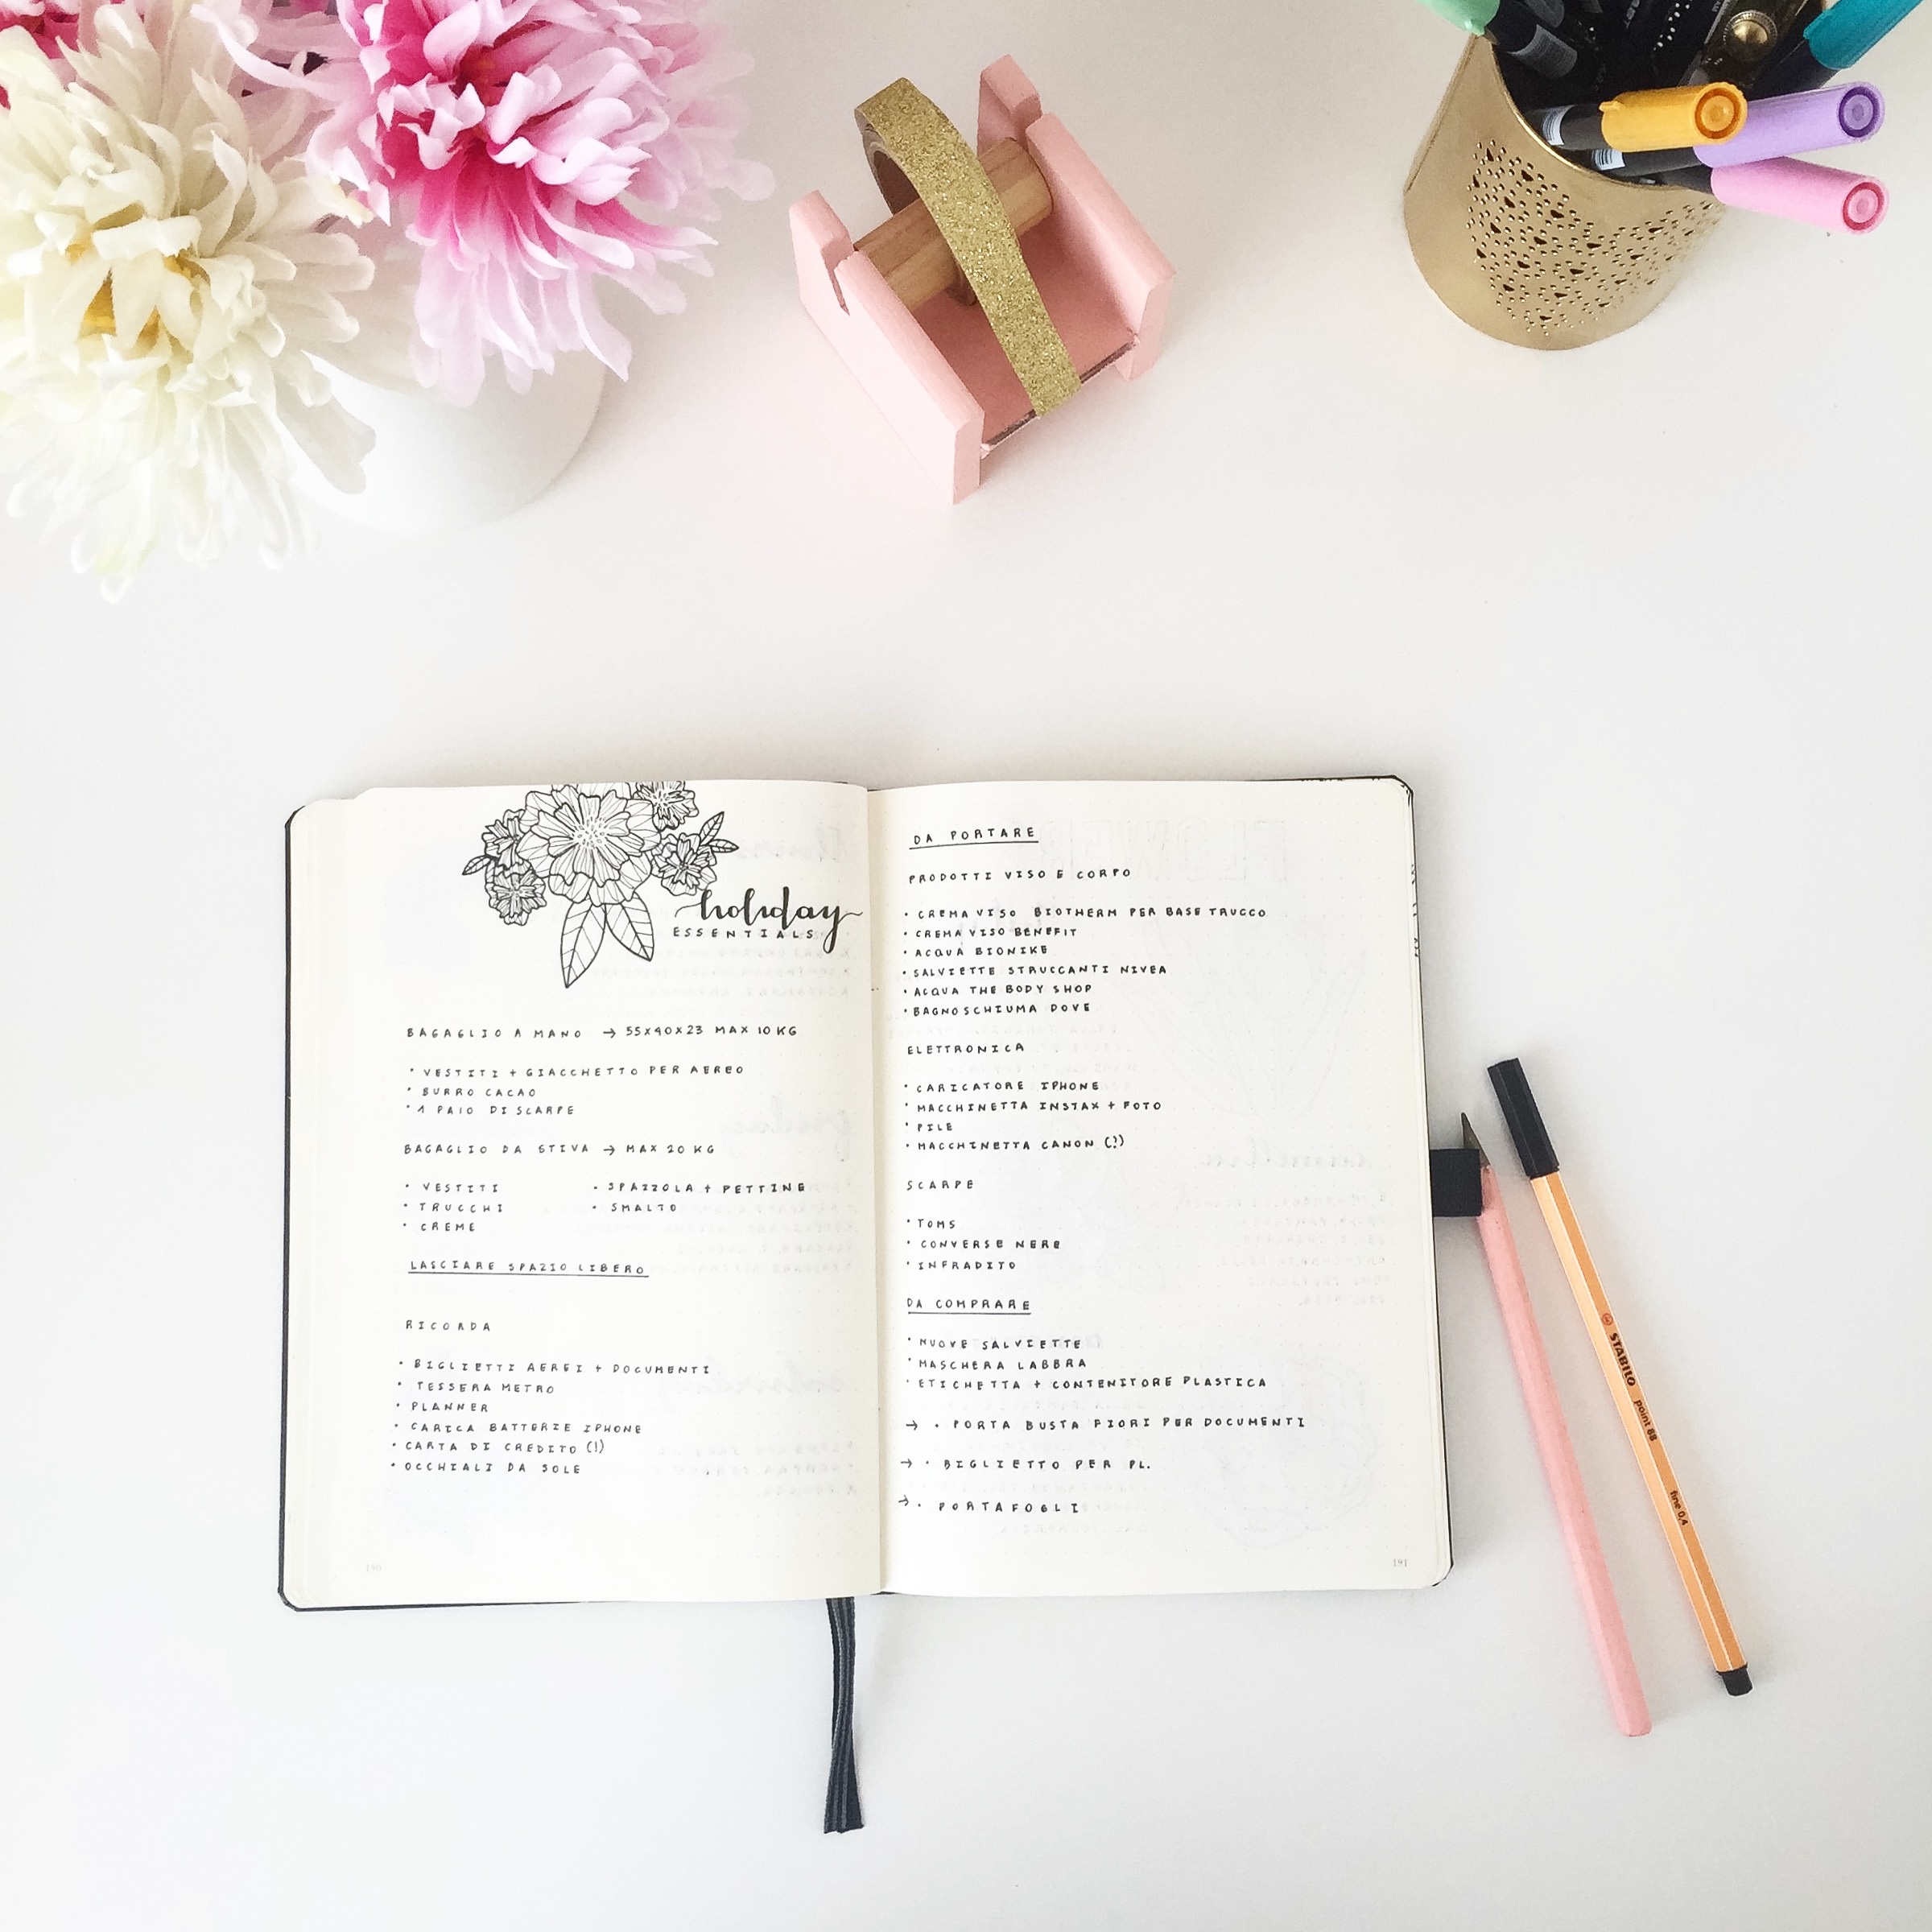 holiday
ESSENTIALS
BAGAGLIO A MANO → 55X40X23 MAX 10 KG
• VESTITI + GIACCHETTO PER AEREO
• BURRO CACAO
• 1 PAIO DI SCARPE
BAGAGLIO DA STIVA → MAX 20 KG
• VESTITI • SPAZZOLA + PETTINE
• TRUCCHI • SMALTO
• CREME
LASCIARE SPAZIO LIBERO
RICORDA
• BIGLIETTI AEREI + DOCUMENTI
• TESSERA METRO
• PLANNER
• CARICA BATTERIE IPHONE
• CARTA DI CREDITO (!)
• OCCHIALI DA SOLE
190
DA PORTARE
PRODOTTI VISO E CORPO
• CREMA VISO BIOTHERM PER BASE TRUCCO
• CREMA VISO BENEFIT
• ACQUA BIONIKE
• SALVIETTE STRUCCANTI NIVEA
• ACQUA THE BODY SHOP
• BAGNOSCHIUMA DOVE
ELETTRONICA
• CARICATORE IPHONE
• MACCHINETTA INSTAX + FOTO
• PILE
• MACCHINETTA CANON (?)
SCARPE
• TOMS
• CONVERSE NERE
• INFRADITO
DA COMPRARE
• NUOVE SALVIETTE
• MASCHERA LABBRA
• ETICHETTA + CONTENITORE PLASTICA
→ • PORTA BUSTA FIORI PER DOCUMENTI
→ • BIGLIETTO PER PL.
→ • PORTAFOGLI
191
STABILO point 88 fine 0,4